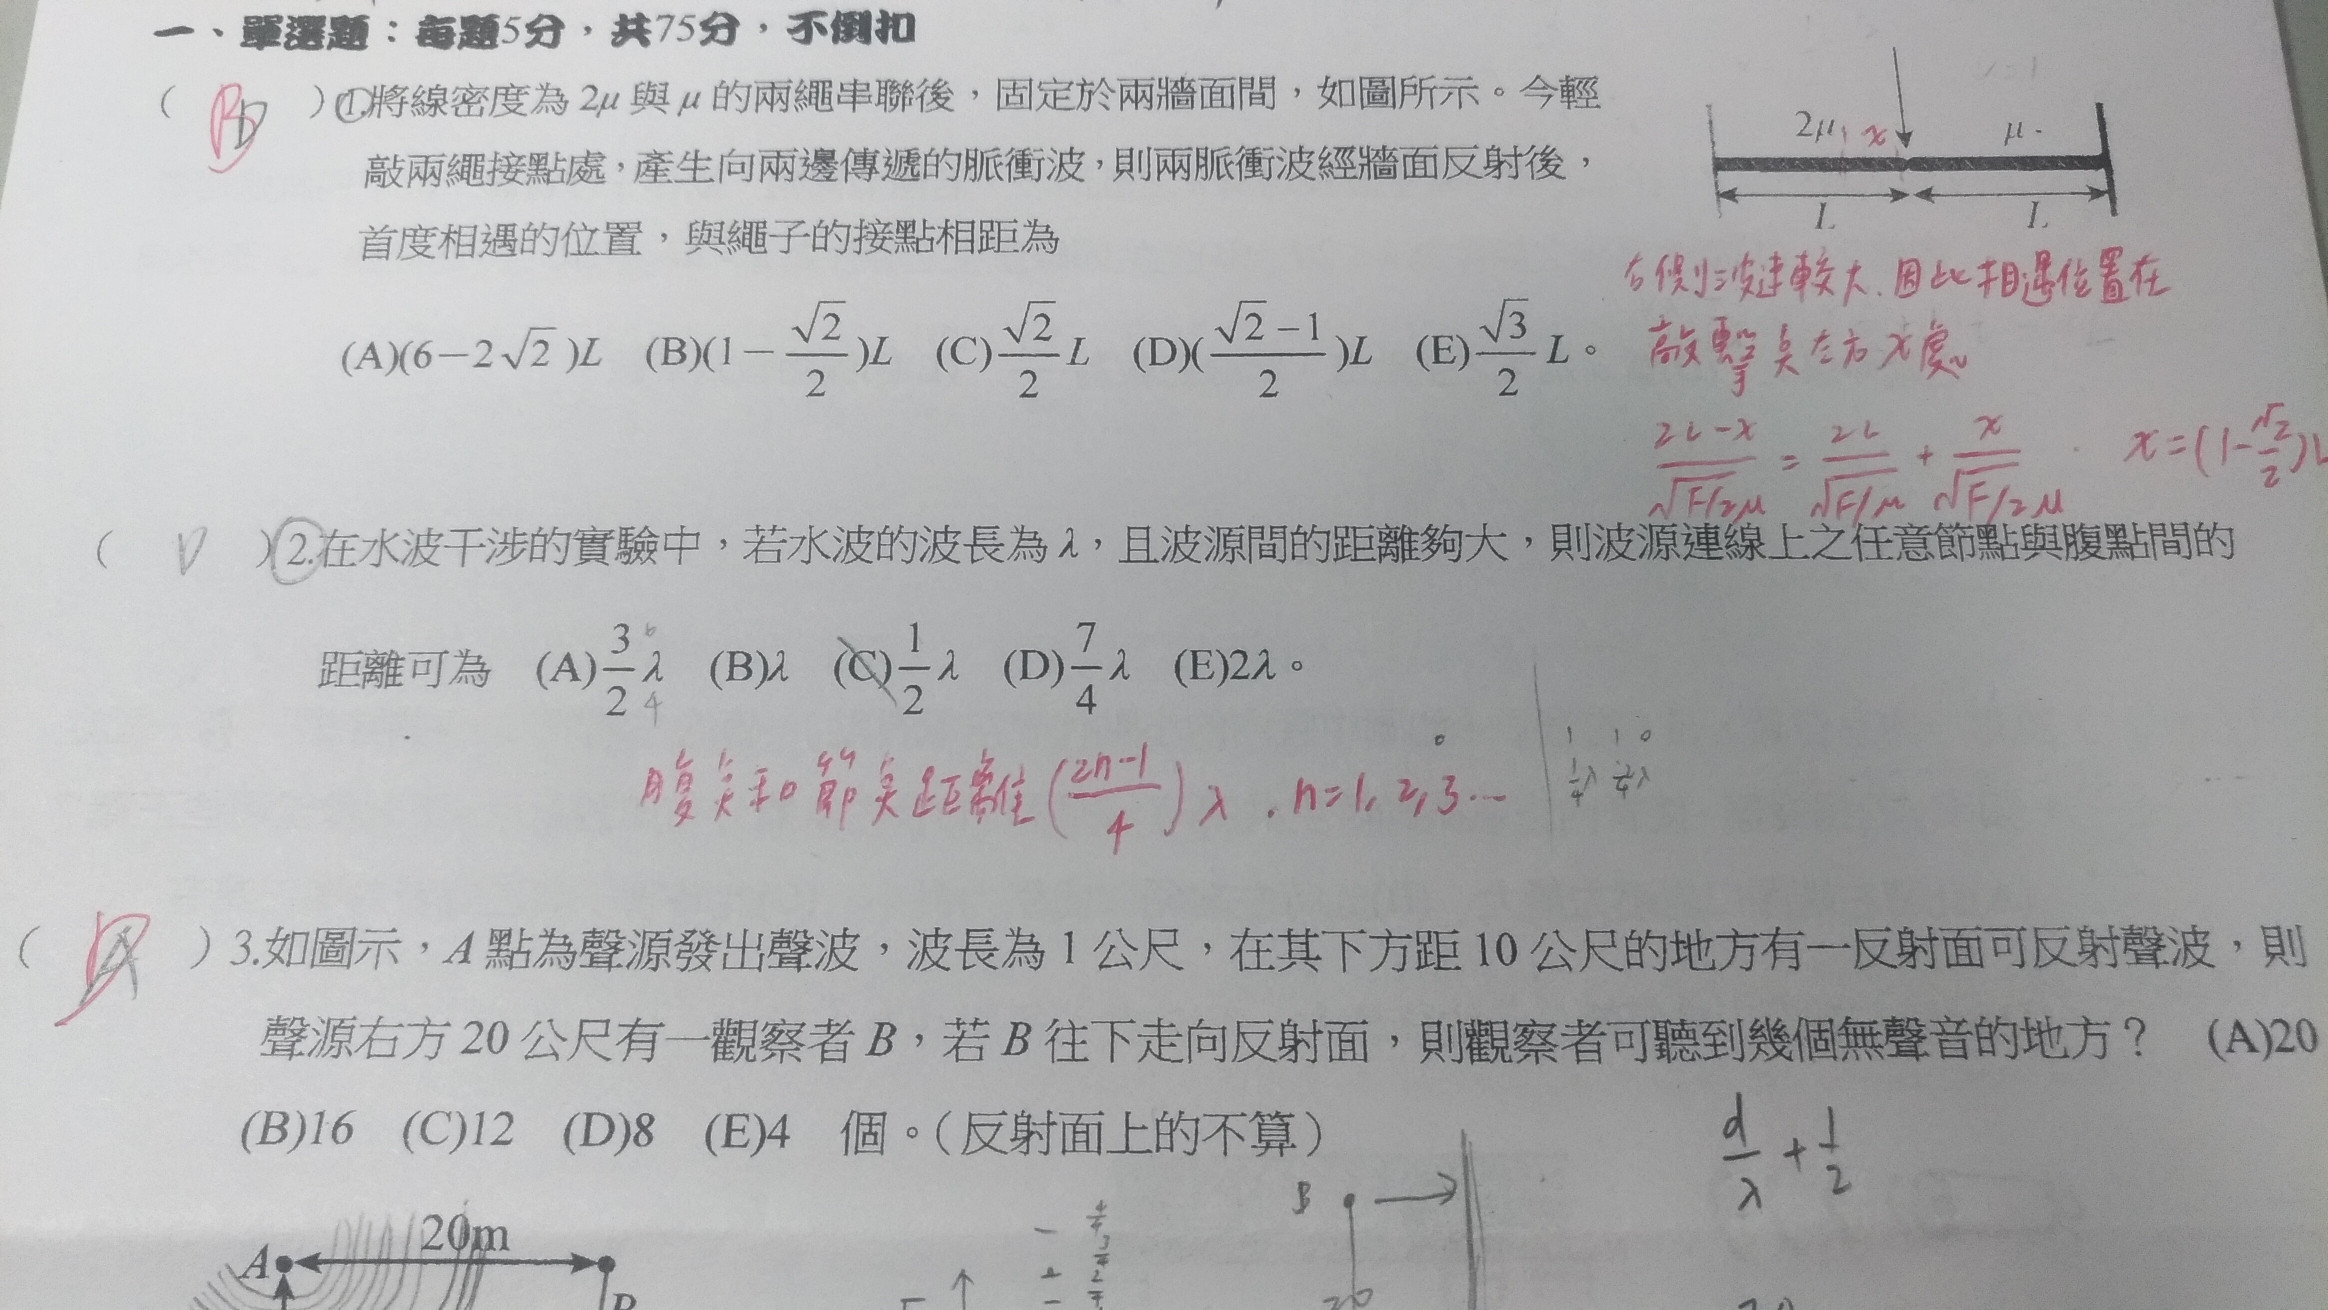 一、單選題：每題5分，共75分，不倒扣
( B D ) 1.將線密度為 2μ 與 μ 的兩繩串聯後，固定於兩牆面間，如圖所示。今輕
敲兩繩接點處，產生向兩邊傳遞的脈衝波，則兩脈衝波經牆面反射後，
首度相遇的位置，與繩子的接點相距為
(A)(6−2√2)L (B)(1−√2/2)L (C)√2/2 L (D)(√2−1/2)L (E)√3/2 L。
2μ x μ
L L
右側波速較大.因此相遇位置在
敲擊点左方x處
2L-x/√F/2μ = 2L/√F/μ + x/√F/2μ x=(1-√2/2)L
( D ) 2.在水波干涉的實驗中，若水波的波長為 λ，且波源間的距離夠大，則波源連線上之任意節點與腹點間的
距離可為 (A)3/2 λ (B)λ (C)1/2 λ (D)7/4 λ (E)2λ。
6
4
腹点和節点距離(2n-1/4)λ . n=1, 2, 3...
1/4λ
( A ) 3.如圖示，A 點為聲源發出聲波，波長為 1 公尺，在其下方距 10 公尺的地方有一反射面可反射聲波，則
聲源右方 20 公尺有一觀察者 B，若 B 往下走向反射面，則觀察者可聽到幾個無聲音的地方？ (A)20
(B)16 (C)12 (D)8 (E)4 個。（反射面上的不算）
d/λ + 1/2
B
20m
A
B
20